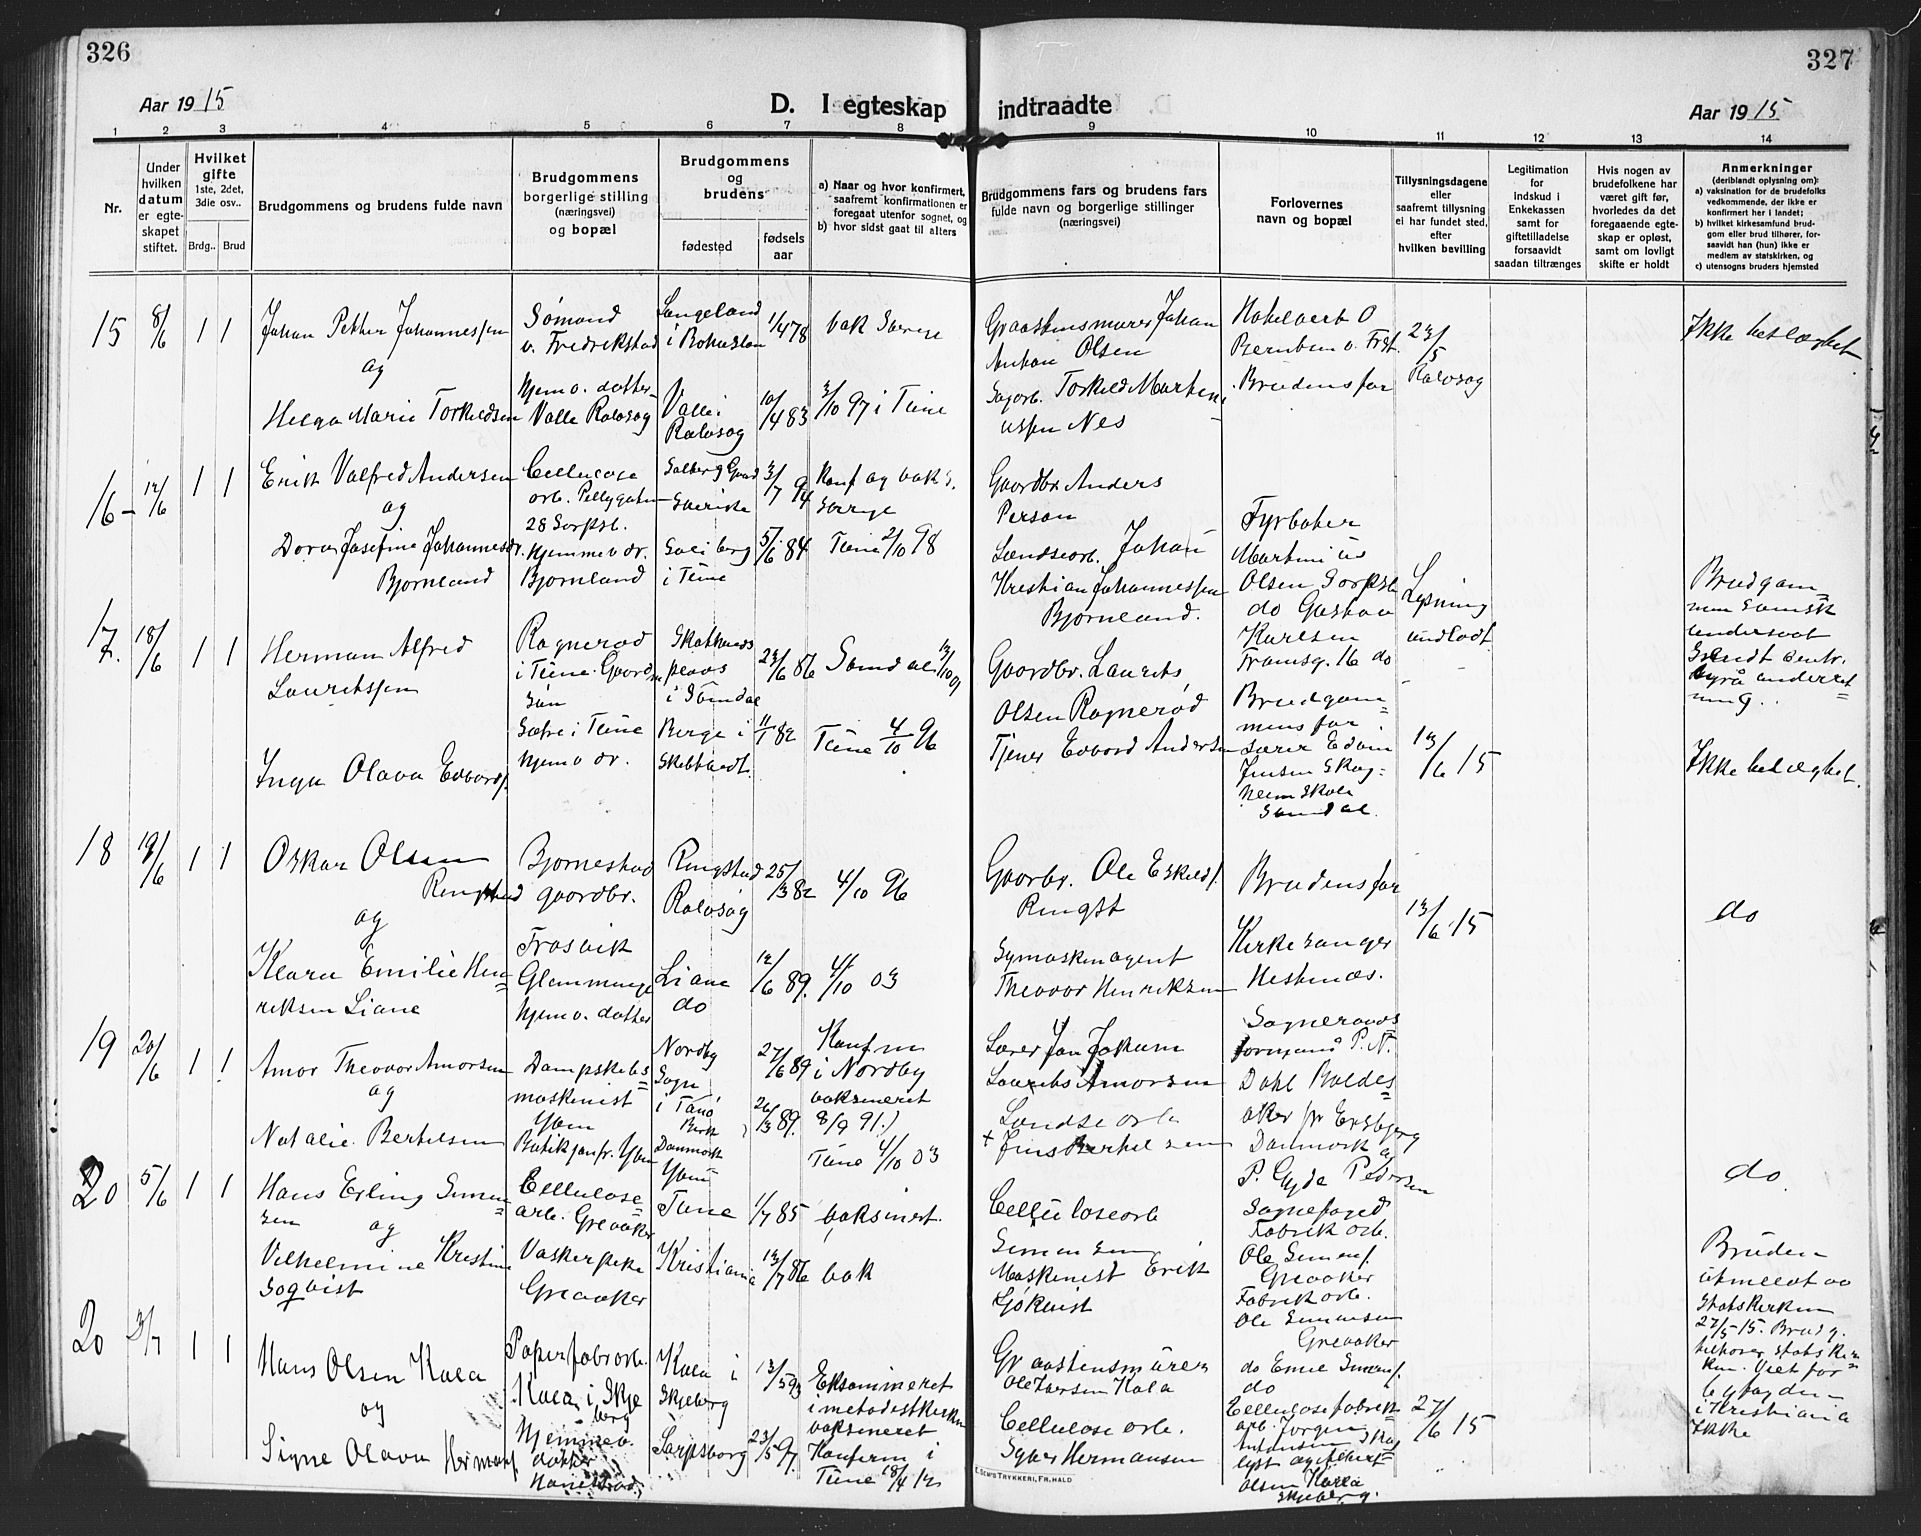 326
Aar 1915
D. I egteskap
1 2 3 4 5 6 7 8
Nr.
Under hvilken datum er egteskapet stiftet.
Hvilket gifte 1ste, 2det, 3die osv..
Brdg.. Brud
Brudgommens og brudens fulde navn
Brudgommens borgerlige stilling (næringsvei) og bopæl
Brudgommens og brudens
fødested
fødsels aar
a) Naar og hvor konfirmert, saafremt konfirmationen er foregaat utenfor sognet, og
b) hvor sidst gaat til alters
15 8/6 1 1
Johan Petter Johannessen
og
Helga Marie Torkildsen
Sømand
v. Fredrikstad
Hjemv. datter
Valle Rolvsøg
Langeland
i Bohuslen
Valle i
Rolvsøg
1/4 78
10/4 83
vak Sverige
3/10 97 i Tune
16 – 12/6 1 1
Erik Valfred Andersen
og
Dorus Josefine Johannesdr.
Bjørnland
Cellulose
arb. Pellygaten
28 Sarpsb.
Hjemmev. dr.
Bjørnland
Solberg Gaard
Sverige
Solberg
i Tune
3/7 94
5/6 84
Konf og vak S.
Sverige
Tune 2/10 98
17. 18/6 1 1
Herman Alfred
Lauritssen
Inga Olava Edvards.
Ragnerød
i Tune. Gaardm
Søn
Sæfre i Tune
Hjemv dr.
plads
i Somdal
Berge i
Skibtvedt.
23/6 86
11/1 82
Somdal 13/10 01
Tune 4/10 96
18 19/6 1 1
Oskar Olsen
Ringstad
og
Klara Emilie Hen=
riksen Liane
Bjørnestad
gaardbr.
Trosvik
Glemminge
Hjemv. datter
Ringstad
Rolvsøg
Liane
do
25/3 82
12/6 89.
4/10 96
4/10 03
19 20/6 1 1
Amor Theodor Amorsen
og
Natalie Bertelsen
Dampskibs=
maskinist
Ybm
Butikjomfr. Ybm
Nordby
Sogn
i Fanø
Birk
Danmark
27/6 89
26/3 89.
Konfm
i Nordby
vaksineret
8/9 91.)
Tune 4/10 03
20 5/6 1 1
Hans Erling Simon=
sen og
Vilhelmine Kristine
Soqvist
Cellulose
arb. Greaaker
Vaskerpike
Greaaker
Tune
Kristiania
1/7 85
13/7 86
vaksinert.
vak
20 3/7 1 1
Hans Olsen Kala
og
Signe Olava Hermans.
Papirfabrarb.
Kala i Skje
berg
Hjemmev.
datter
Hannestad.
Kala i
Skjeberg
Sarpsborg
13/5 93
23/5 97.
Eksamineret
i metodistkirken
vaksineret
Konferm i
Tune 18/4 12
327
indtraadte
Aar 1915
9 10 11 12 13 14
Brudgommens fars og brudens fars fulde navn og borgerlige stillinger (næringsvei)
Forlovernes navn og bopæl
Tillysningsdagene eller saafremt tillysning ei har fundet sted, efter hvilken bevilling
Legitimation for indskud i Enkekassen samt for giftetilladelse forsaavidt saadan tiltrænges
Hvis nogen av brudefolkene har været gift før, hvorledes da det foregaaende egteskap er opløst, samt om lovligt skifte er holdt
Anmerkninger
(deriblandt oplysning om):
a) vaksination for de brudefolks vedkommende, der ikke er konfirmert her i landet;
b) hvilket kirkesamfund brudgom eller brud tilhører, forsaavidt han (hun) ikke er medlem av statskirken, og
c) utensogns bruders hjemsted
Graastensmurer Johan
Anton Olsen
Torkild Marten
ussen Nes
Berntsen v. Frst.
Brudens far
23/5
Rolvsøg
Ikke beslægtet
Gaardbr. Anders
Person
Landsearb. Johan
Kristian Johannessen
Bjørnland.
Fyrbøter
Martinius
Olsen Sarpsb
do Gustav
Karlsen
Framsg. 16 do
Lysning
undladt
Brudgom=
men svensk
undersaat
Sendt centr.
byrå underret=
ning.
Gaardbr. Laurits
Olsen Ragnerød
Tjener Edvard Andersen
Brudgom=
mens far
Lærer Edvin
Jensen Skog=
heim Skole
Somdal.
13/6 15
Ikke beslægtet.
Gaarbr. Ole Eskilds.
Ringst
Symaskinagent
Theodor Henriksen
Brudens far
Kirkesanger
Hestenæs.
13/6 15
do
Lærer Jan Jokum
Laurits Amorsen
Landse arb
+ Jens Bertelsen
Sogneraads
formand P. N.
Dahl Boldes
aker pr Esbjerg
Danmark og
P. Gyde Pedersen
Sognefoged
do
Celluloseorb
Simonsen
Maskinist Erik
Sjökvist
Fabrik arb.
Ole Simons.
Greaaker
Fabrik arb.
Ole Simonsen
Greaaker
Bruden
utmeldt av
statskirken
27/5 15. Brudg.
tilhører statskir=
ken. Viet for
byfogden
i Kristiania
Ikke
Graastensmurer
Ole Larsen Kala
Cellulose arb.
Syver Hermansen
do Emil Simons.
do
Cellulosefabrik=
arb. Jørgen
Antonsen Skog
lyst og Albert
Olsen Kala
Skjeberg.
27/6 15
E. SEMS TRYKKERI, FR.HALD